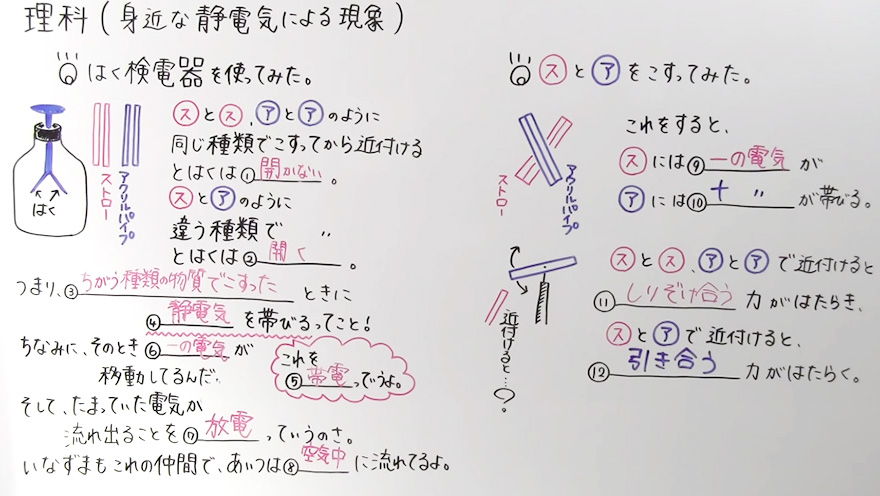 理科(身近な静電気による現象)
はく検電器を使ってみた。
はく
ストロー
アクリルパイプ
スとス、アとアのように
同じ種類でこすってから近付ける
とはくは①開かない。
スとアのように
違う種類で 〃
とはくは②開く。
つまり、③ちがう種類の物質でこすったときに
④静電気を帯びるってこと!
ちなみに、そのとき⑥−の電気が
移動してるんだ。
これを
⑤帯電っていうよ。
そして、たまっていた電気が
流れ出ることを⑦放電っていうのさ。
いなずまもこれの仲間で、あいつは⑧空気中に流れてるよ。
スとアをこすってみた。
ストロー
アクリルパイプ
これをすると、
スには⑨−の電気が
アには⑩+ 〃 が帯びる。
近付けると…?
スとス、アとアで近付けると
⑪しりぞけ合う力がはたらき、
スとアで近付けると、
⑫引き合う力がはたらく。